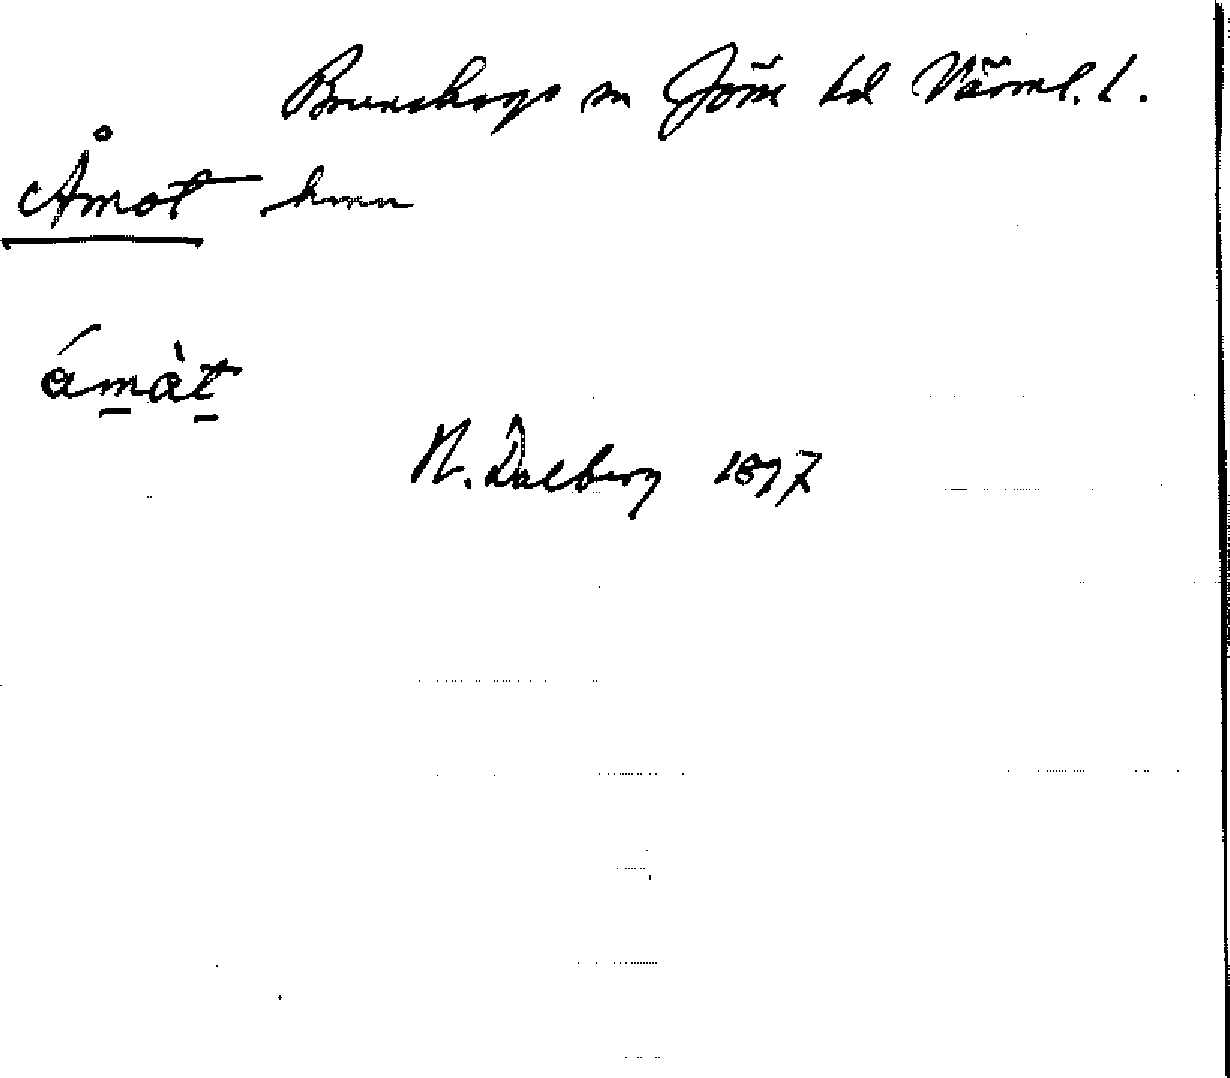 Brunskogs sn Jösse hd Värml. l.
Åmot hmn
ámàt
N. Dalberg 1897